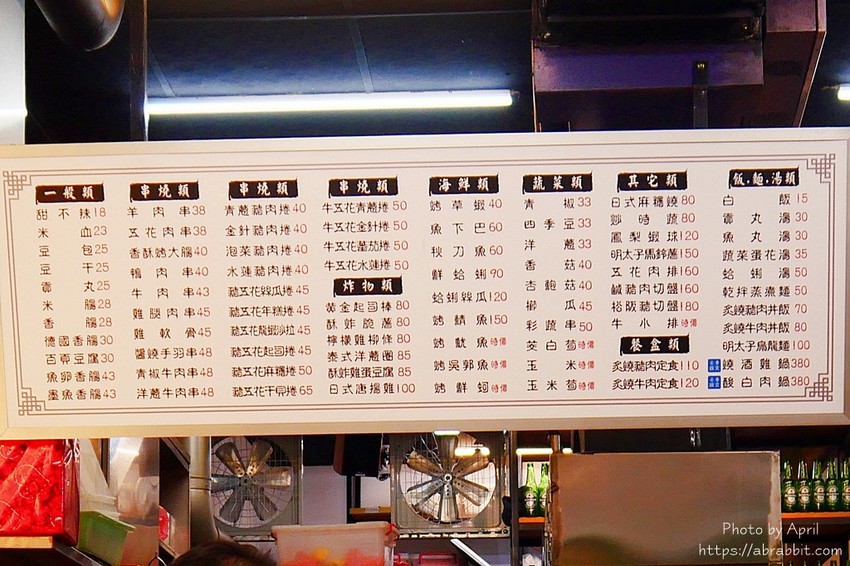 一般類
甜不辣18
米血23
豆包25
豆干25
貢丸25
米腸28
香腸28
德國香腸30
百頁豆腐30
魚卵香腸43
墨魚香腸43
串燒類
羊肉串38
五花肉串38
香酥鴿大腸40
鴨肉串40
牛肉串43
雞腿肉串45
雞軟骨45
醬燒手羽串48
青椒牛肉串48
洋蔥牛肉串48
串燒類
青蔥豬肉捲40
金針豬肉捲40
泡菜豬肉捲40
水蓮豬肉捲40
豬五花絲瓜捲45
豬五花年糕捲45
豬五花龍蝦沙拉45
豬五花起司捲45
豬五花麻糬捲50
豬五花干貝捲65
串燒類
牛五花青蔥捲50
牛五花金針捲50
牛五花蕃茄捲50
牛五花水蓮捲50
炸物類
黃金起司棒80
酥炸脆薯80
檸檬雞柳條80
泰式洋蔥圈85
酥炸雞蛋豆腐85
日式唐揚雞100
海鮮類
烤草蝦40
魚下巴60
秋刀魚60
鮮蛤蜊90
蛤蜊絲瓜120
烤鯖魚150
烤魷魚時價
烤吳郭魚時價
烤鮮蚵時價
蔬菜類
青椒33
四季豆33
洋蔥33
香菇40
杏鮑菇40
櫛瓜45
彩蔬串50
茭白筍時價
玉米時價
玉米筍時價
其它類
日式麻糬燒80
炒時蔬80
鳳梨蝦球120
明太子馬鈴薯150
五花肉排160
鹹豬肉切盤160
松阪豬切盤180
牛小排時價
餐盒類
炙燒豬肉定食110
炙燒牛肉定食120
飯.麵.湯類
白飯15
貢丸湯30
魚丸湯30
蔬菜蛋花湯35
蛤蜊湯50
乾拌蒸煮麵50
炙燒豬肉丼飯70
炙燒牛肉丼飯80
明太子烏龍麵100
燒酒雞鍋380
酸白肉鍋380
Photo by April
https://abrabbit.com